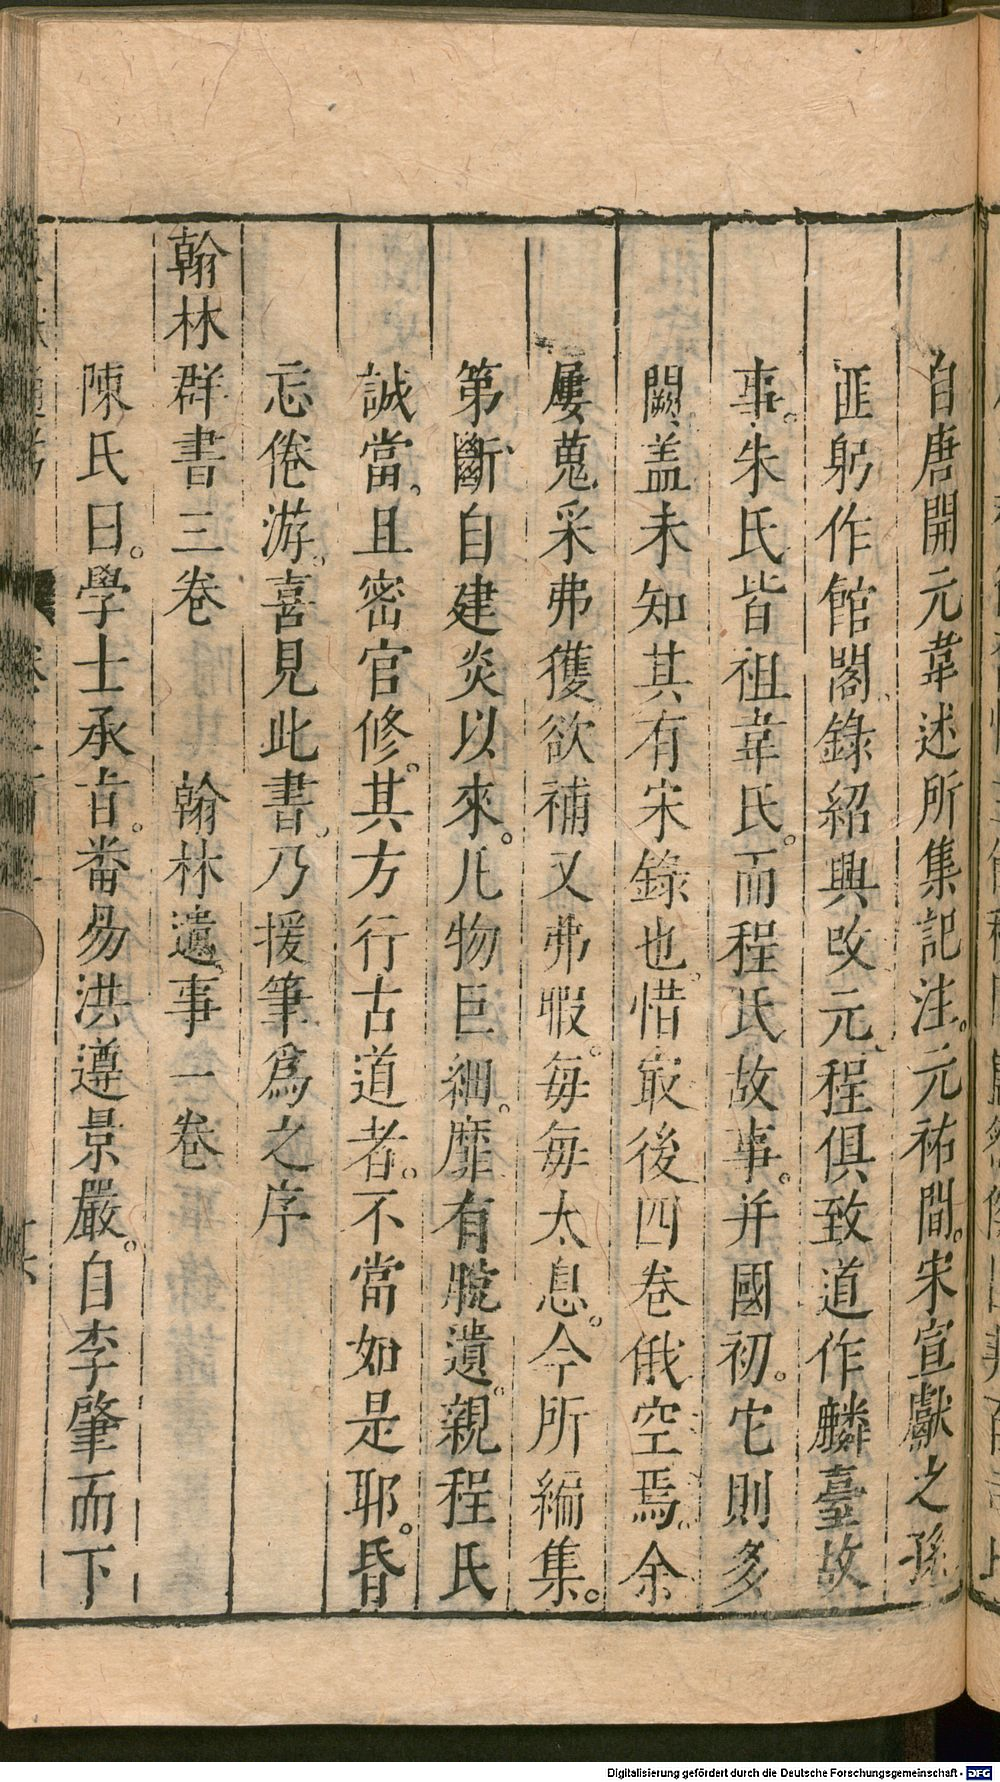 自唐開元韋述所集記注。元祐間。宋宣獻之孫
匪躬作館閣錄紹興改元。程俱致道作麟臺故
事。朱氏皆祖韋氏。而程氏故事。并國初。它則多
闕、盖未知其有宋錄也。惜㝡後四卷俄空焉。余
屢蒐采弗獲欲補又弗暇。每每太息。今所編集。
第斷自建炎以來。凡物巨細。靡有脫遺。親程氏
誠當。且密官修。其方行古道者。不當如是耶。昏
忘倦游。喜見此書。乃援筆爲之序
翰林群書三卷 翰林遺事一卷
陳氏曰。學士承㫖。畨昜洪遵景嚴。自李肇而下
Digitalisierung gefördert durch die Deutsche Forschungsgemeinschaft - DFG